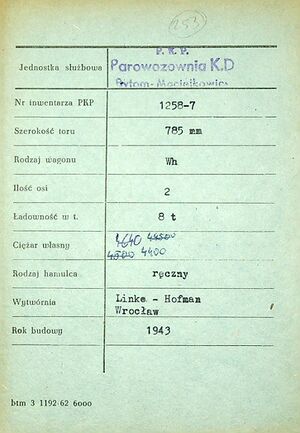 253
P. K. P.
Jednostka służbowa Parowozownia K.D
Bytom-Maciejkowice
Nr inwentarza PKP 1258-7
Szerokość toru 785 mm
Rodzaj wagonu Wh
Ilość osi 2
Ładowność w t. 8 t
4640 44500
Ciężar własny 4500 4400
Rodzaj hamulca ręczny
Wytwórnia Linke - Hofman
Wrocław
Rok budowy 1943
btm 3 1192 62 6000